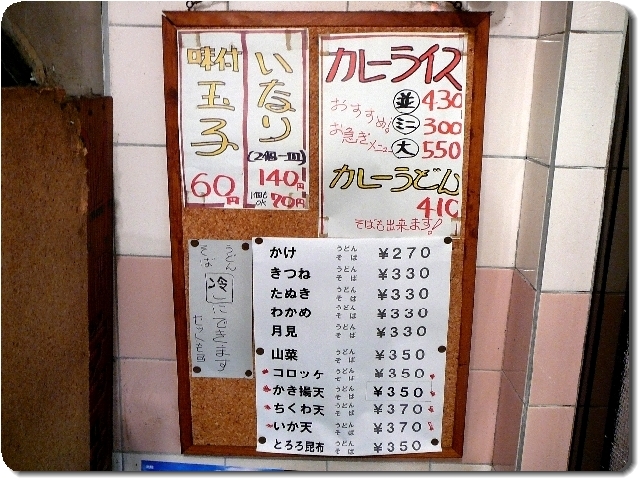 味付玉子
60円
いなり
(2個一皿)
140円
1個もOK 70円
カレーライス
おすすめ!
お急ぎメニュー
並 430
ミニ 300
大 550
カレーうどん
410
そばも出来ます!
うどん
そば
冷にできます
かけ うどん そば ¥270
きつね うどん そば ¥330
たぬき うどん そば ¥330
わかめ うどん そば ¥330
月見 うどん そば ¥330
山菜 うどん そば ¥350
コロッケ うどん そば ¥350
かき揚天 うどん そば ¥350
ちくわ天 うどん そば ¥370
いか天 うどん そば ¥370
とろろ昆布 うどん そば ¥350